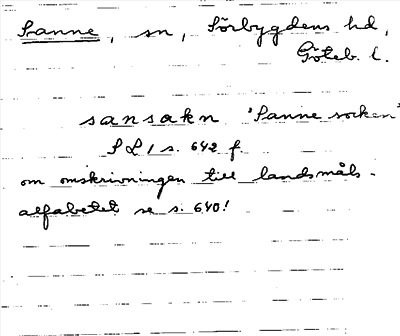 Sanne, sn, Sörbygdens hd,
Göteb. l.
sansokn 'Sanne socken'
SL 1 s. 642 f
om omskrivningen till landsmåls-
alfabetet se s. 640!